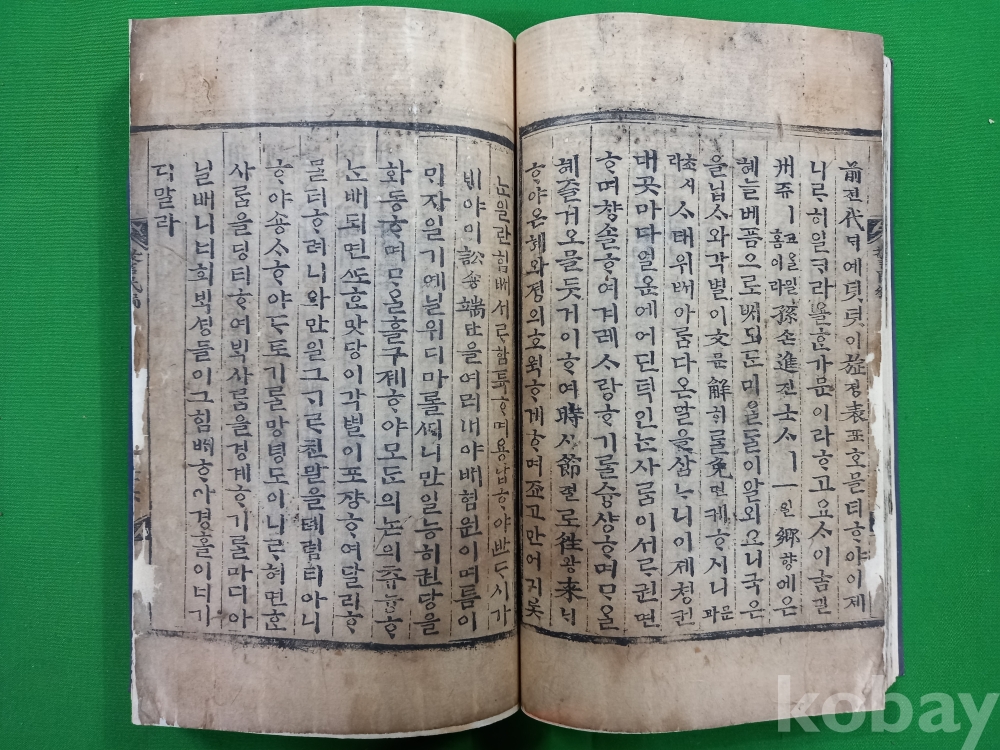 前젼代ᄃᆡ예덧덧이旌졍表표호믈더ᄒᆞ야이제
니르히일ᄏᆞ라올ᄒᆞᆫ가문이라ᄒᆞ고요ᄉᆞ이
州쥬ㅣ고올일홈이라孫손進진士ᄉᆞㅣ一일鄕향에은
혜ᄅᆞᆯ베품으로ᄡᅥ알외오니국은
을닙ᄉᆞ와각별이文문解ᄒᆡᄅᆞᆯ免면케ᄒᆞ시니문과
초시라아ᄅᆞᆷ다온말을삼ᄂᆞ니이제쳥컨
대곳마다어딘인ᄂᆞᆫ사ᄅᆞᆷ이서ᄅᆞ권면
ᄒᆞ며챵솔ᄒᆞ여겨레ᄉᆞ랑ᄒᆞ기ᄅᆞᆯ슝샹ᄒᆞ며ᄆᆞ올
혜즐거오믈듯거이ᄒᆞ여時시節졀로往왕來ᄅᆡ
ᄒᆞ야은혜와졍의ᄒᆞ게ᄒᆞ며죠고만어긔옷
ᄂᆞᆫ일란힘ᄡᅥ서ᄅᆞ함듁ᄒᆞ며용납ᄒᆞ야반ᄃᆞ시가
ᄇᆡ야이訟숑端단을여러내야ᄡᅥ험원이며틈이
ᄆᆡ자일기예닐위디마롤ᄯᅵ니만일능히권당을
화동ᄒᆞ며ᄆᆞ올흘구졔ᄒᆞ야모든의논의츄듕ᄒᆞ
ᄂᆞᆫ배되면ᄯᅩᄒᆞᆫ맛당이각별이포쟝ᄒᆞ여달리ᄒᆞ
믈더ᄒᆞ려니와만일그ᄀᆞᄅᆞ친말을톄렴티아니
ᄒᆞ야숑ᄉᆞᄒᆞ야ᄃᆞ토기ᄅᆞᆯ망녕도이니ᄅᆞ혀면ᄒᆞᆫ
사ᄅᆞᆷ을딩티ᄒᆞ여ᄇᆡᆨ사ᄅᆞᆷ을경계ᄒᆞ기ᄅᆞᆯ마디아
닐배니너희ᄇᆡᆨ셩들이그힘ᄡᅥᄒᆞ야경홀이너기
디말라
kobay